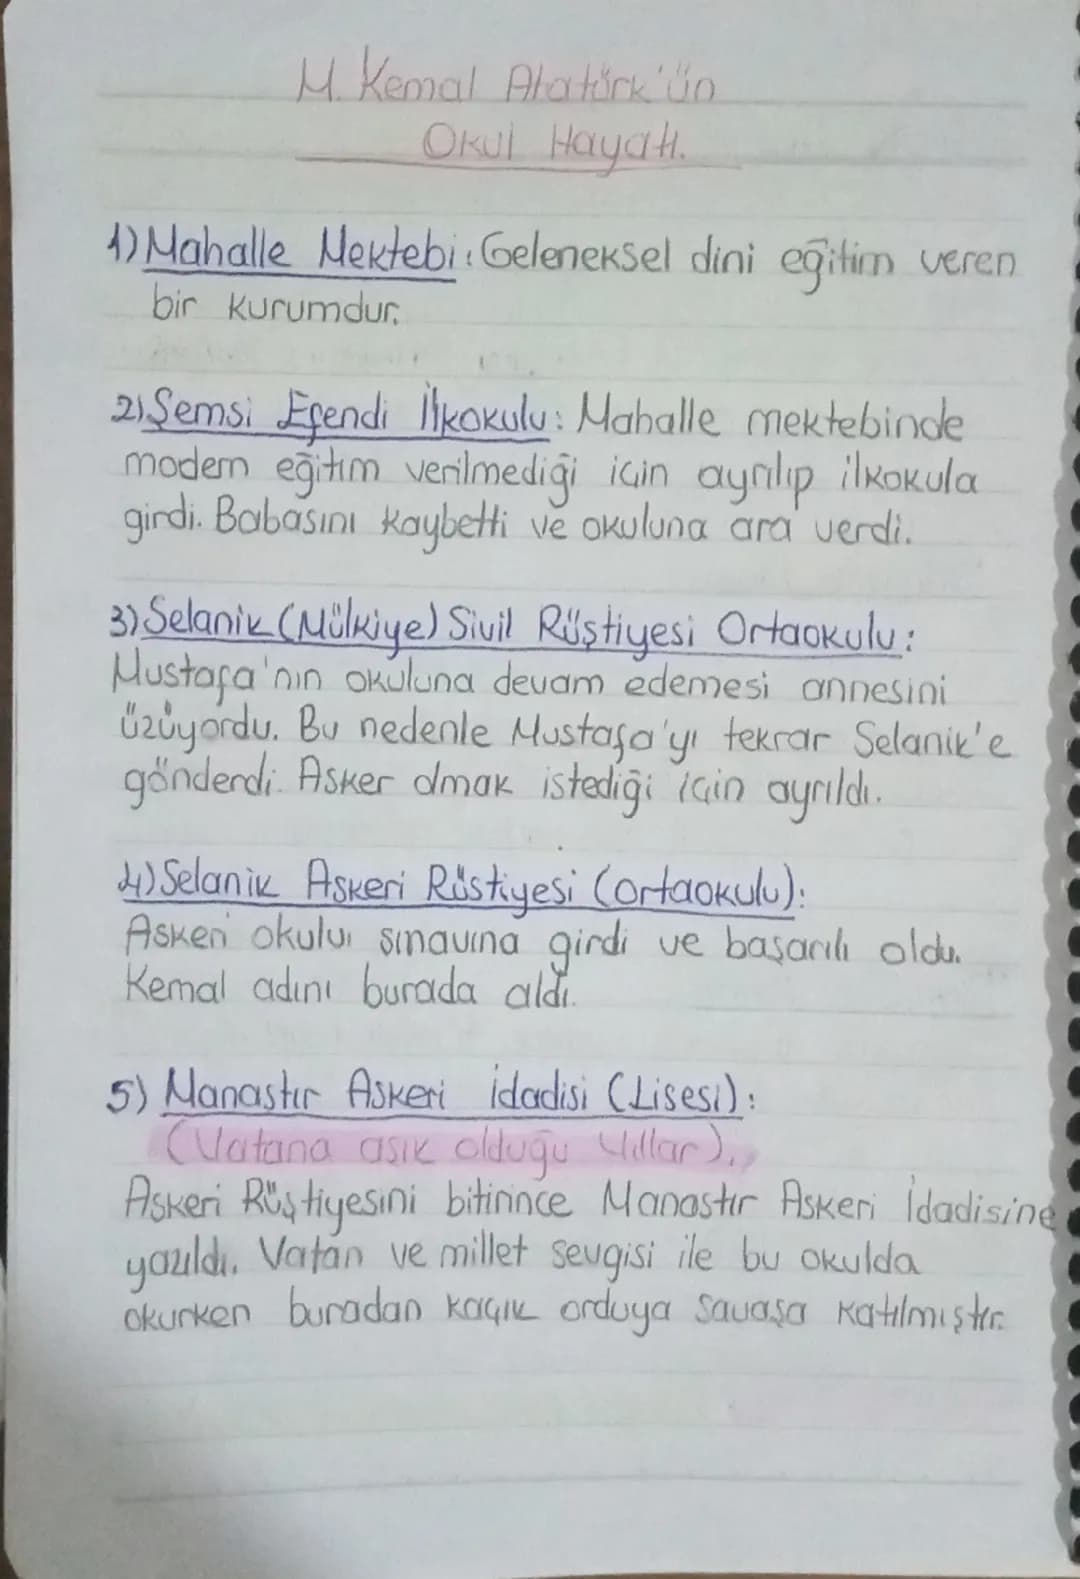 M. Kemal Atatürk'ün
Okul Hayatı.
1) Mahalle Mektebi: Geleneksel dini eğitim veren
bir kurumdur.
2) Şemsi Efendi İlkokulu: Mahalle mektebinde
modern eğitim verilmediği için ayrılıp ilkokula
girdi. Babasını kaybetti ve okuluna ara verdi.
3) Selanik (Mülkiye) Sivil Rüştiyesi Ortaokulu:
Mustafa'nın okuluna devam edemesi annesini
üzüyordu. Bu nedenle Mustafa'yı tekrar Selanik'e
gönderdi. Asker olmak istediği için ayrıldı.
4) Selanik Askeri Rüştiyesi (Ortaokulu):
Askeri okulu sınavına girdi ve başarılı oldu.
Kemal adını burada aldı.
5) Manastır Askeri İdadisi (Lisesi):
(Vatana aşık olduğu Yıllar).
Askeri Rüştiyesini bitirince Manastır Askeri İdadisine
yazıldı. Vatan ve millet sevgisi ile bu okulda
okurken buradan kaçık orduya savaşa katılmıştır.